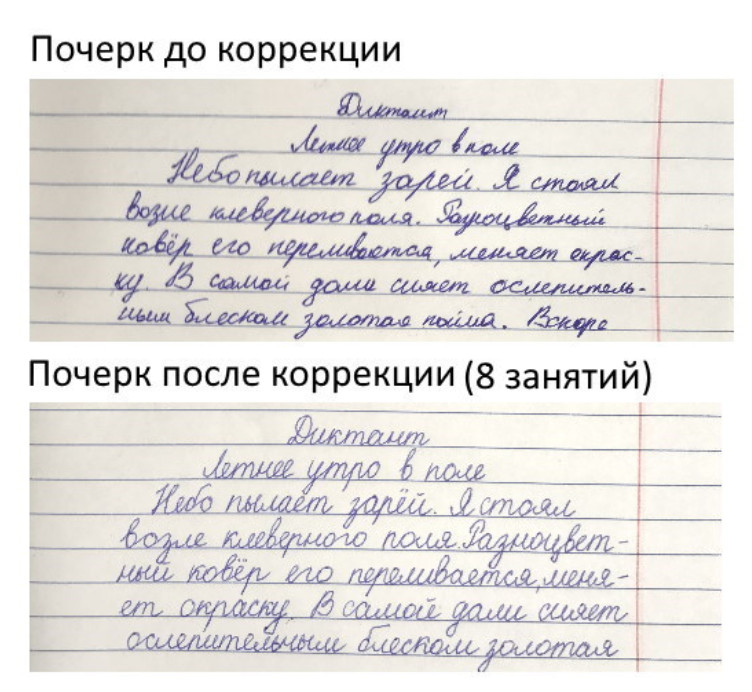 Почерк до коррекции
Диктант
Летнее утро в поле
Небо пылает зарей. Я стоял
возле клеверного поля. Разноцветный
ковёр его переливается, меняет окрас-
ку. В самой дали сияет ослепитель-
ным блеском золотая пойма. Вскоре
Почерк после коррекции (8 занятий)
Диктант
Летнее утро в поле
Небо пылает зарёй. Я стоял
возле клеверного поля. Разноцвет-
ный ковёр его переливается, меня-
ет окраску. В самой дали сияет
ослепительным блеском золотая